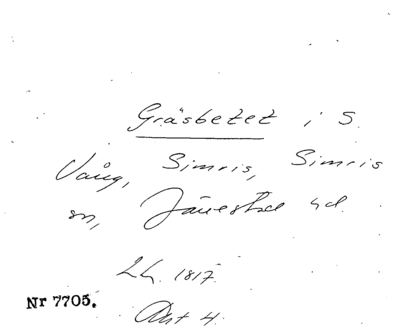 Gräsbetet i S.
Vång, Simris, Simris
sn, Järrestad hd.
LG. 1817.
Akt 4.
Nr 7705.